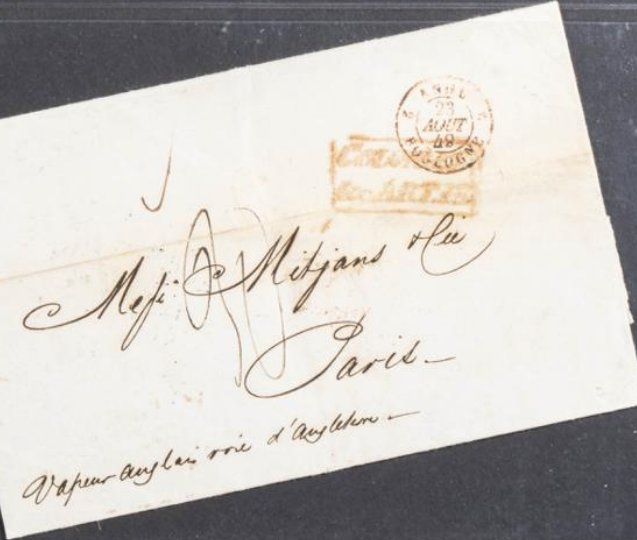 2 ANGL. 2
23
AOUT
49
BOULOGNE
COLONIES
&c. ART.13.
Mess. Mitjans & Cie
Paris
Vapeur anglais voie d'Angleterre